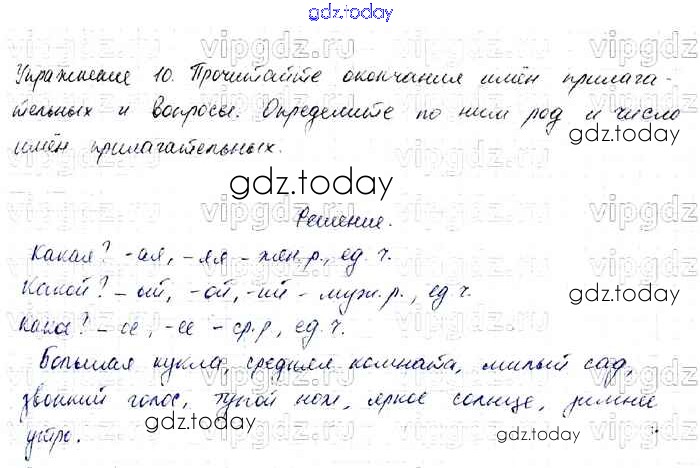 gdz.today
Упражнение 10. Прочитайте окончания имён прилага-
тельных и вопросы. Определите по ним род и число
имён прилагательных.
gdz.today
gdz.today
Решение.
Какая? -ая, -яя - жен.р., ед.ч.
Какой? - ый, -ой, -ий - муж.р., ед.ч.
gdz.today
Какое? - ое, -ее - ср.р, ед.ч.
Большая кукла, средняя комната, милый сад,
звонкий голос, тупой нож, яркое солнце, зимнее
утро.
gdz.today
gdz.today